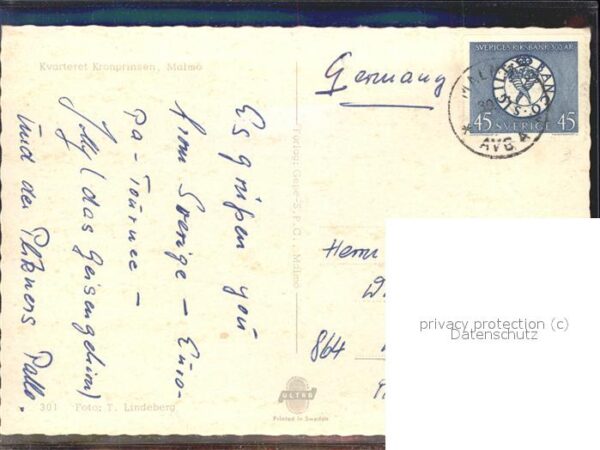 Kvarteret Kronprinsen, Malmö
Germany
SVERIGES RIKSBANK 300 ÅR
45 SVERIGE 45
AVG A
Es grüßen you
from Sverige – Euro-
pa-Tournee –
Jolly (das Geisengehirn)
und der Plikners Pallo.
Förlag: Gape-S.P.C., Malmö
Herrn
864
301 Foto: T. Lindeberg
ULTRA
Printed in Sweden
privacy protection (c)
Datenschutz